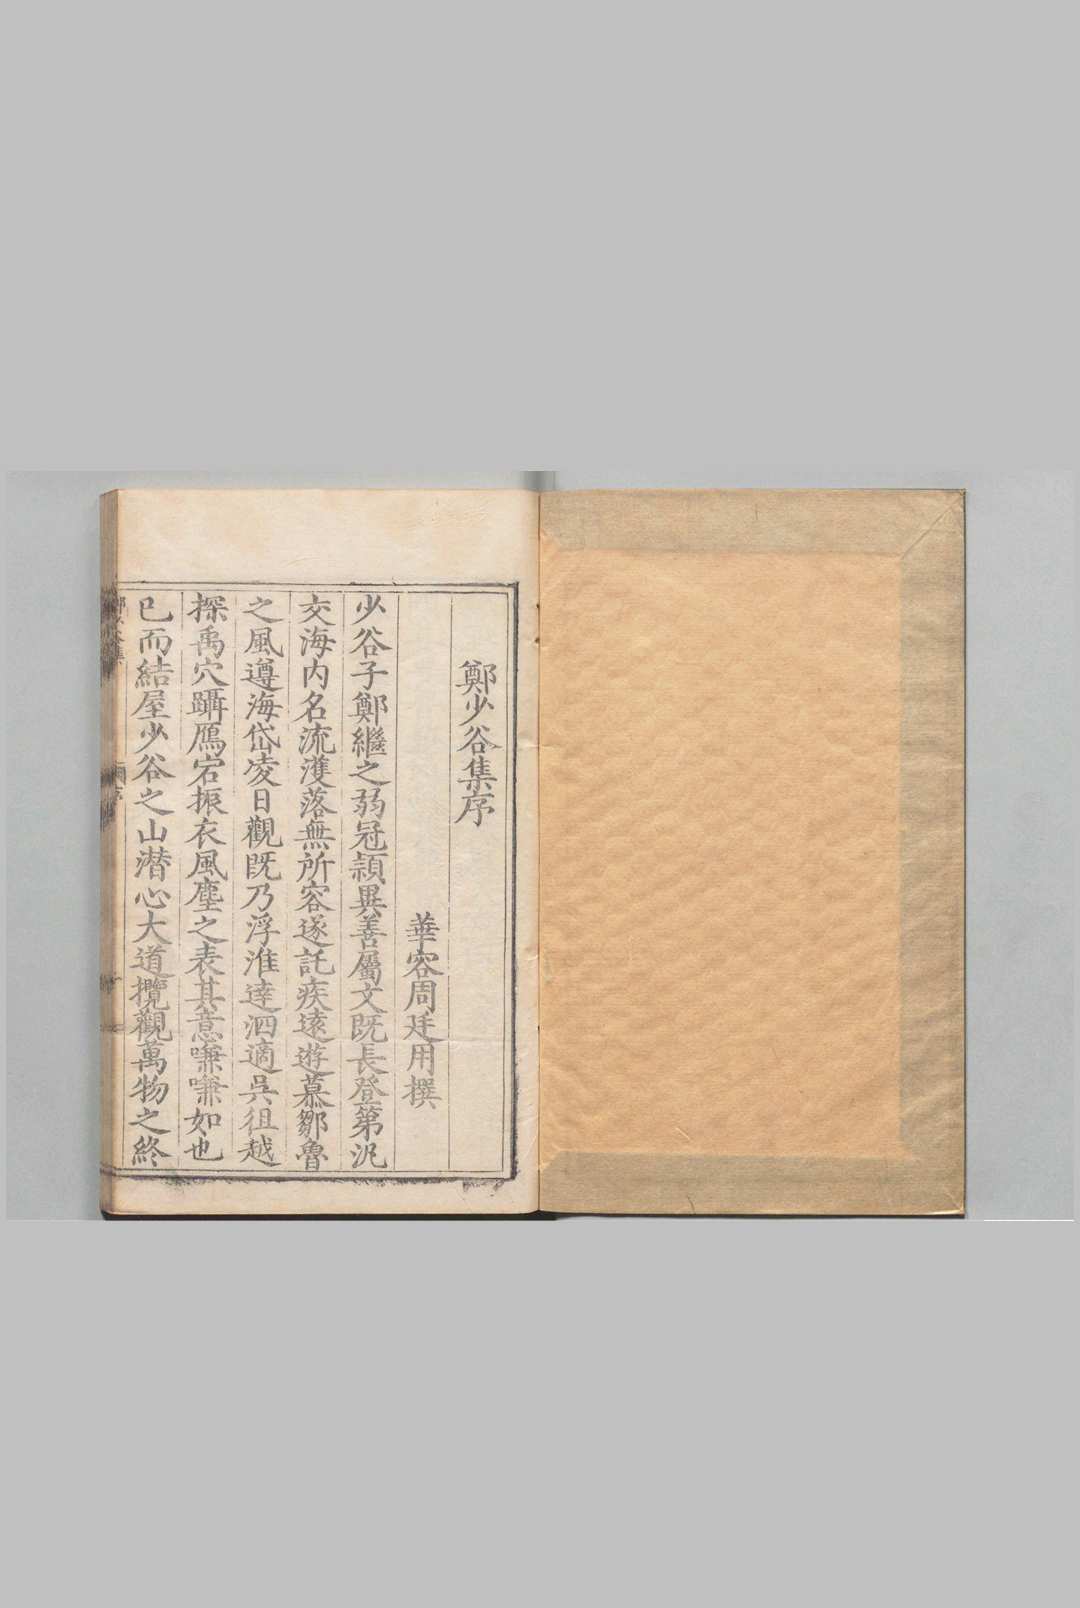 鄭少谷集序
華容周廷用撰
少谷子鄭繼之弱冠頴異善屬文既長登第汎
交海内名流濩落無所容遂託疾遠遊慕鄒魯
之風遵海岱凌日觀既乃浮淮達泗適吳徂越
探禹穴躡鴈宕振衣風塵之表其意嗛嗛如也
已而結屋少谷之山潜心大道攬觀萬物之終